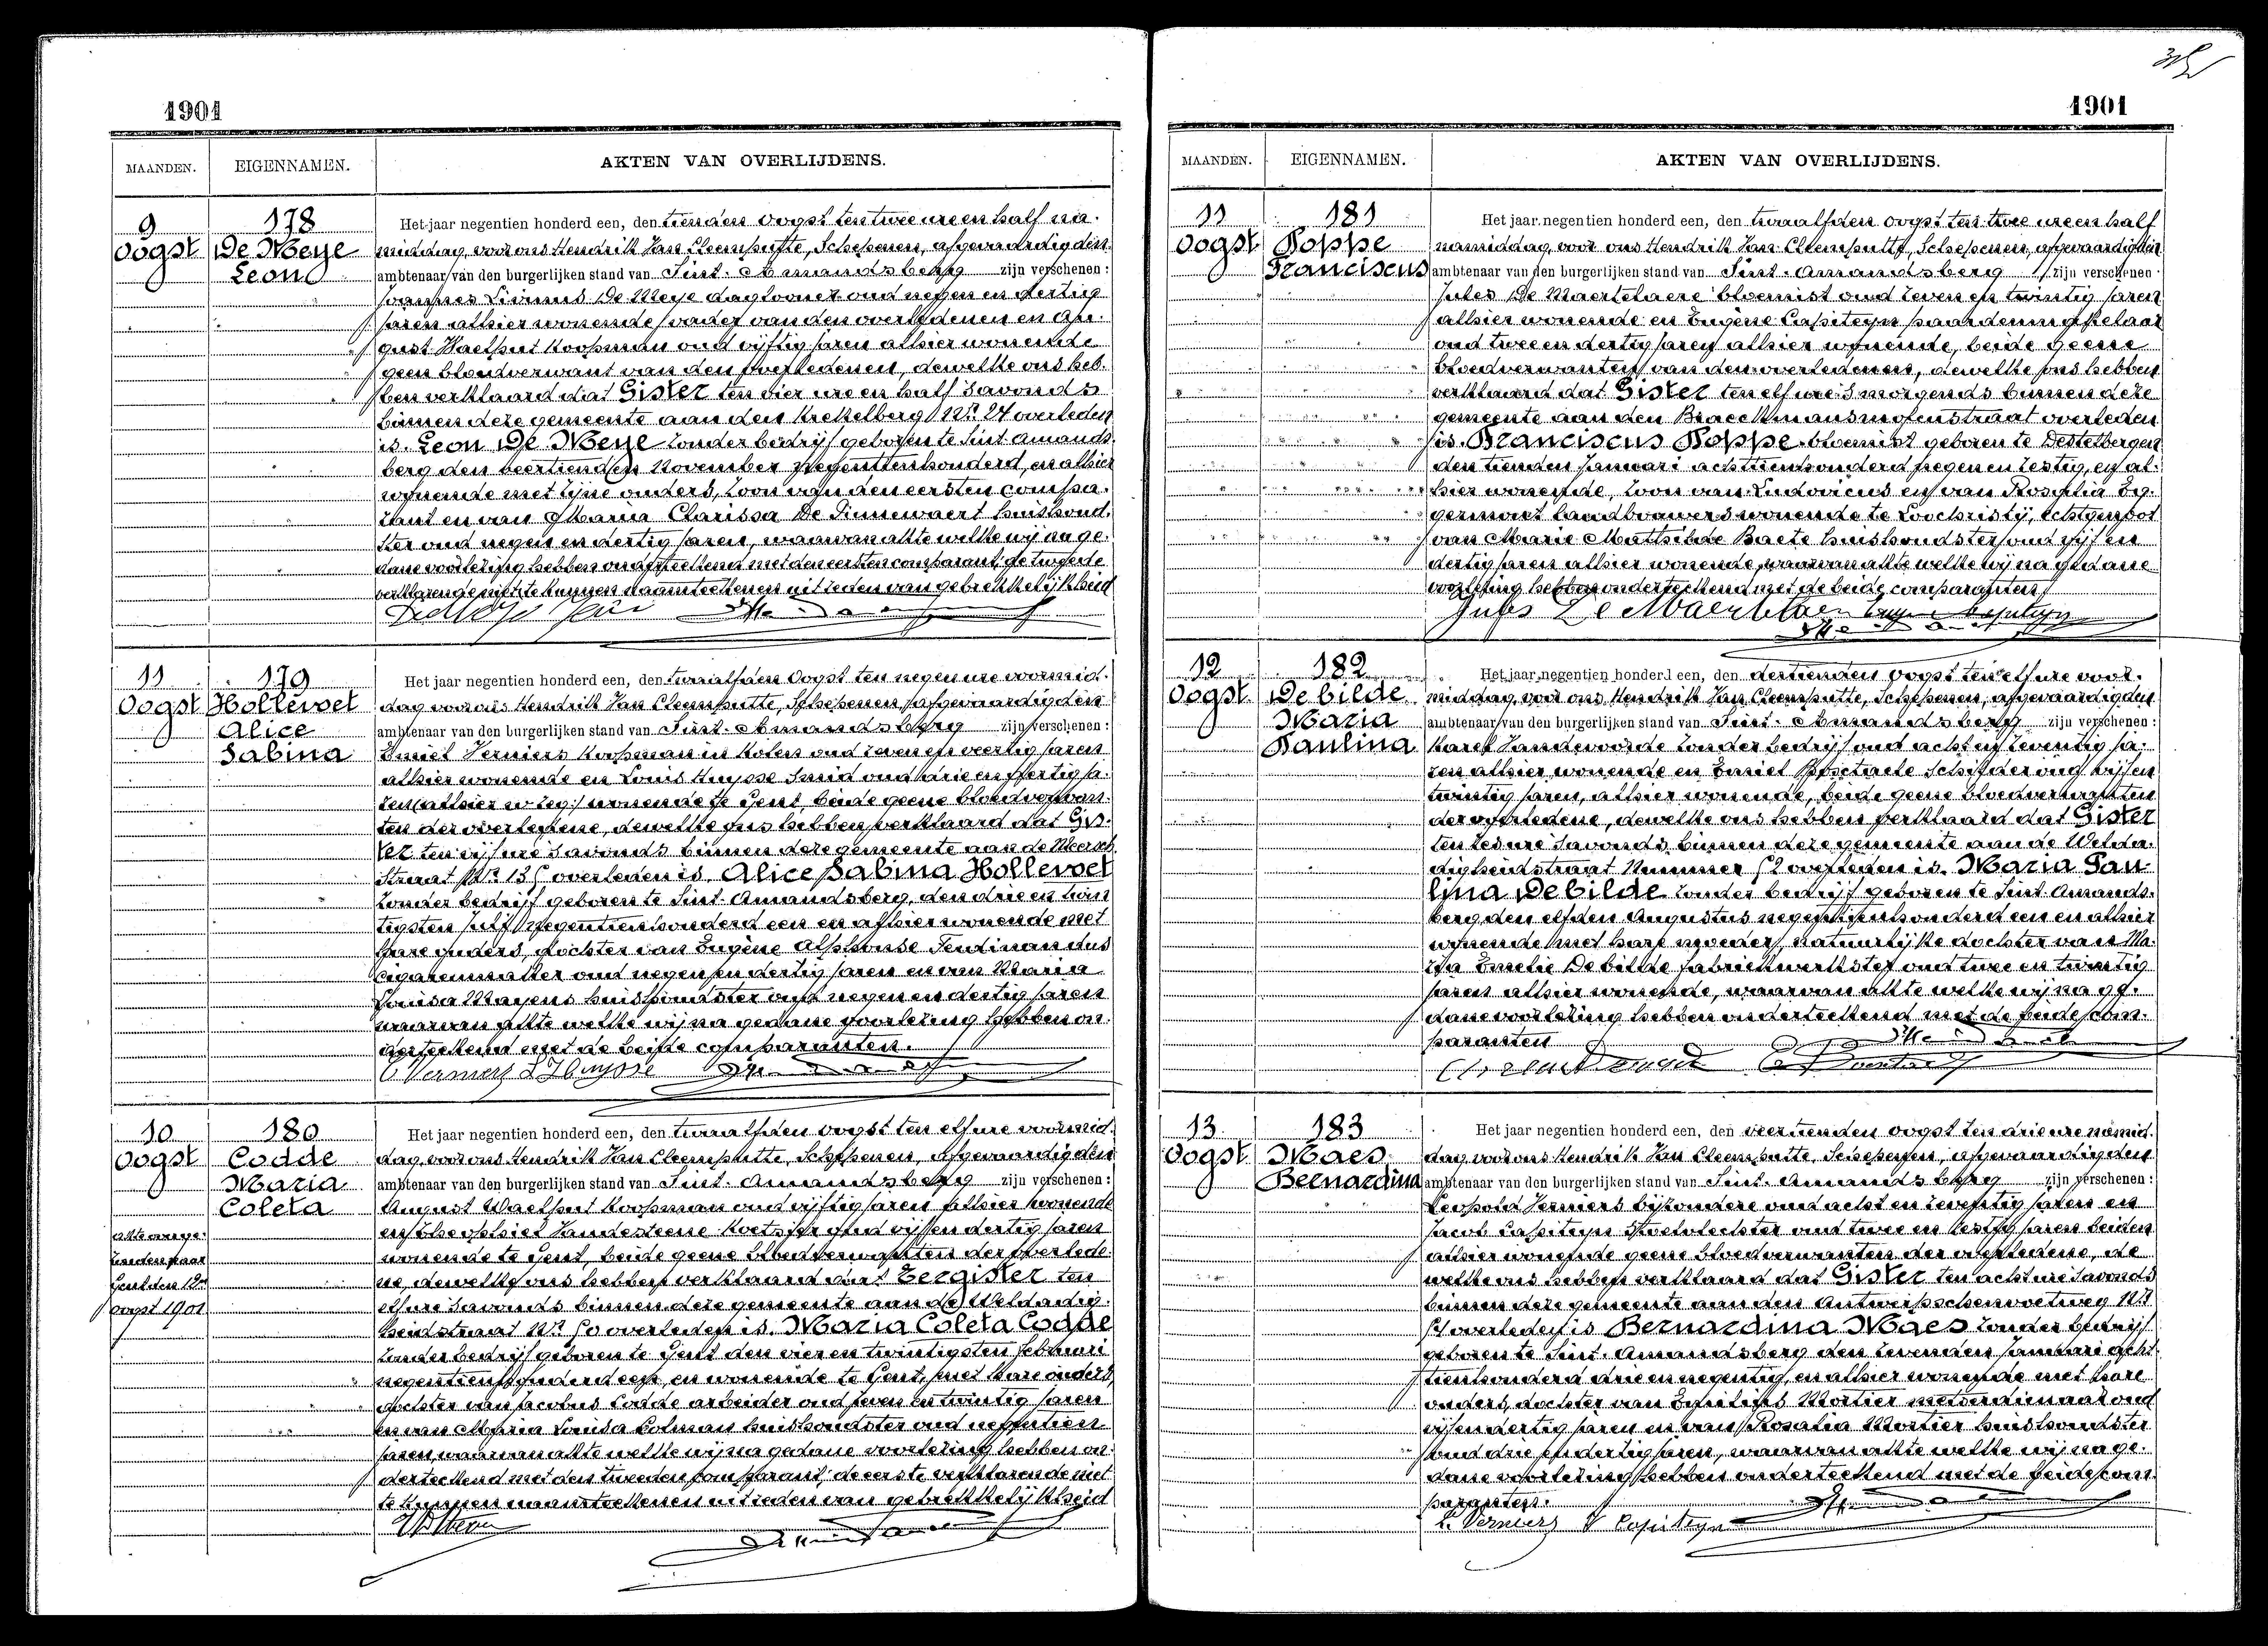 1901
MAANDEN. EIGENNAMEN. AKTEN VAN OVERLIJDENS.
9 178 Het jaar negentien honderd een, den tienden Oogst ten twee ure en half na-
Oogst De Meye middag, voor ons Hendrik Van Cleemputte, Schepenen, afgevaardigden
Leon ambtenaar van den burgerlijken stand van Sint-Amandsberg zijn verschenen:
Joannes Livinus De Meye daglooner oud negen en dertig
jaren alhier wonende vader van den overledenen en Au-
gust Waelput koopman oud vijftig jaren alhier wonende
geen bloedverwant van den overledenen, dewelke ons heb-
ben verklaard dat Gister ten vier ure en half savonds
binnen deze gemeente aan den Krekelberg Nr 24 overleden
is Leon De Meye zonder bedrijf geboren te Sint Amands-
berg den veertienden November negentienhonderd, en alhier
wonende met zijne ouders, zoon van den eersten compa-
rant en van Maria Clarissa De Pinnewaert huishoud-
ster oud negen en dertig jaren, waarvan akte welke wij na ge-
dane voorlezing hebben onderteekend met den eersten comparant, de tweede
verklarende niet te kunnen naamteekenen uit reden van gebrekkelijkheid
11 179 Het jaar negentien honderd een, den twaalfden Oogst ten negen ure voormid-
Oogst Hollevoet dag voor ons Hendrik Van Cleemputte, Schepenen, afgevaardigden
Alice ambtenaar van den burgerlijken stand van Sint-Amandsberg zijn verschenen:
Sabina Emiel Verniers koopman in kolen oud zeven en veertig jaren
alhier wonende en Louis Huysse Smid oud drie en veertig ja-
ren (alhier w-zeg:) wonende te Gent, beide geene bloedverwan-
ten der overledene, dewelke ons hebben verklaard dat Gis-
ter ten vijf ure savonds binnen deze gemeente aan de Meersch
straat Nr overleden is Alice Sabina Hollevoet
zonder bedrijf geboren te Sint-Amandsberg, den drie en twin
tigsten Juli negentienhonderd een en alhier wonende met
hare ouders, dochter van Eugène Alphonse Ferdinandus
cigarenmaker oud negen en dertig jaren en van Maria
Louisa Mayens huishoudster oud negen en dertig jaren
waarvan akte welke wij na gedane voorlezing hebben on-
derteekend met de beide comparanten.
E Verniers L Huysse
10 180 Het jaar negentien honderd een, den twaalfden oogst ten elf ure voormid-
Oogst Codde dag, voor ons Hendrik Van Cleemputte, Schepenen, afgevaardigden
Maria ambtenaar van den burgerlijken stand van Sint-Amandsberg zijn verschenen:
Coleta August Waelput Koopman oud vijftig jaren alhier wonende
akte overge- en Theophiel Vandesteene Koetsier oud vijf en dertig jaren
zonden naar wonende te Gent, beide geene bloedverwanten der overlede-
Gent den 12n ne, dewelke ons hebben verklaard dat Eergister ten
oogst 1901 elf ure savonds binnen deze gemeente aan de Weldadig-
heidstraat Nr overleden is Maria Coleta Codde
zonder bedrijf geboren te Gent den vier en twintigsten februari
negentienhonderd een, en wonende te Gent, met hare ouders,
dochter van Jacobus Codde arbeider oud zeven en twintig jaren
en van Maria Louisa Colman huishoudster oud negentien
jaren, waarvan akte welke wij na gedane voorlezing hebben on-
derteekend met den tweeden comparant, de eerste verklarende niet
te kunnen naamteekenen uit reden van gebrekkelijkheid
1901
MAANDEN. EIGENNAMEN. AKTEN VAN OVERLIJDENS.
11 181 Het jaar negentien honderd een, den twaalfden oogst ten twee ure en half
Oogst Poppe namiddag, voor ons Hendrik Van Cleemputte, Schepenen, afgevaardigden
Franciscus ambtenaar van den burgerlijken stand van Sint-Amandsberg zijn verschenen:
Jules De Maertelaere bloemist oud zeven en twintig jaren
alhier wonende en Eugène Capiteyn paardensmokelaar
oud twee en dertig jaren alhier wonende, beide geene
bloedverwanten van den overledenen, dewelke ons hebben
verklaard dat Gister ten elf ure s morgends binnen deze
gemeente aan den Braeckmansmolenstraat overleden
is Franciscus Poppe bloemist geboren te Destelbergen
den tienden Januari achttienhonderd negen en zestig, en al-
hier wonende, zoon van Ludovicus en van Rosalia Eg-
germont landbouwers wonende te Loochristy, Echtgenoot
van Marie Mathilde Baete huishoudster oud vijf en
dertig jaren alhier wonende, waarvan akte welke wij na gedane
voorlezing hebben onderteekend met de beide comparanten
Jules De Maertelaere Eugène Capiteyn
12 182 Het jaar negentien honderd een, den dertienden oogst ten elf ure voor-
Oogst De bilde middag, voor ons Hendrik Van Cleemputte, Schepenen, afgevaardigden
Maria ambtenaar van den burgerlijken stand van Sint-Amandsberg zijn verschenen:
Paulina Karel Vandevoorde zonder bedrijf oud acht en zeventig ja-
ren alhier wonende en Emiel Schilder oud vijf en
twintig jaren, alhier wonende, beide geene bloedverwanten
der overledene, dewelke ons hebben verklaard dat Gister
ten zes ure savonds binnen deze gemeente aan de Welda-
digheidstraat Nummer 52 overleden is Maria Pau-
lina De bilde zonder bedrijf geboren te Sint Amands-
berg den elfden Augustus negentienhonderd een en alhier
wonende met hare moeder, natuurlijke dochter van Ma-
ria Emelie De bilde fabriekwerkster oud twee en twintig
jaren alhier wonende, waarvan akte welke wij na ge-
dane voorlezing hebben onderteekend met de beide com-
paranten
13 183 Het jaar negentien honderd een, den veertienden oogst ten drie ure namid-
Oogst Maes dag, voor ons Hendrik Van Cleemputte, Schepenen, afgevaardigden
Bernardina ambtenaar van den burgerlijken stand van Sint-Amandsberg zijn verschenen:
Leopold Verniers bijzondere oud acht en zeventig jaren en
Jacob Capiteyn oud twee en zestig jaren beiden
alhier wonende geene bloedverwanten der overledene, de
welke ons hebben verklaard dat Gister ten acht ure savonds
binnen deze gemeente aan den Antwerpschenvoetweg Nr
overleden is Bernardina Maes zonder bedrijf
geboren te Sint-Amandsberg den zevenden Januari acht-
tienhonderd drie en negentig, en alhier wonende met hare
ouders, dochter van Mortier metserdienaar oud
vijf en dertig jaren en van Rosalia Mortier huishoudster
oud drie en dertig jaren, waarvan akte welke wij na ge-
dane voorlezing hebben onderteekend met de beide com-
paranten.
L. Verniers J Capiteyn